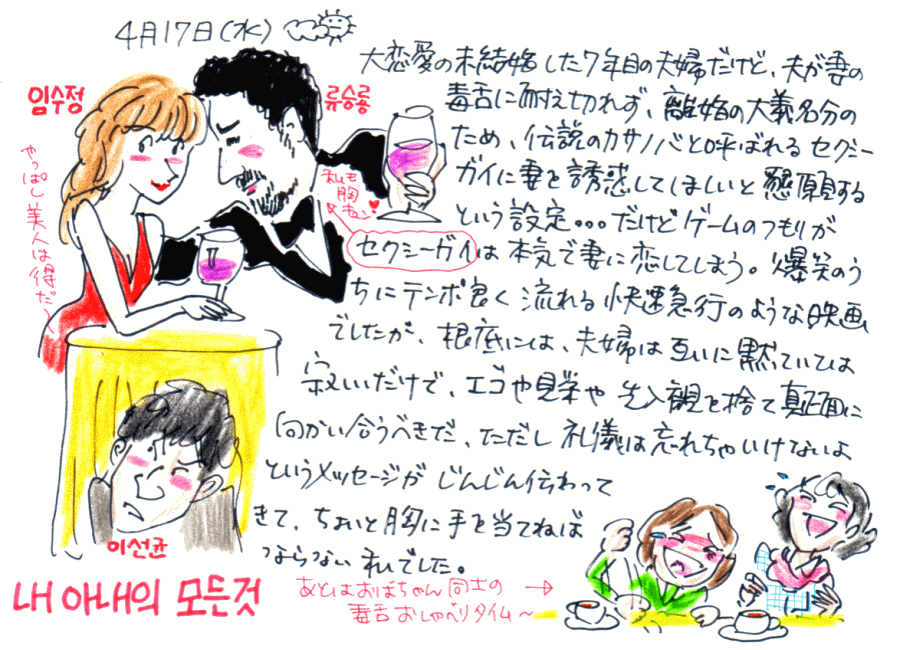 4月17日(水)
임수정
류승룡
やっぱし美人は得だ〜
私も
胸
キュン
大恋愛の末結婚した7年目の夫婦だけど、夫が妻の
毒舌に耐え切れず、離婚の大義名分の
ため、伝説のカサノバと呼ばれるセクシー
ガイに妻を誘惑してほしいと懇願する
という設定。。。だけどゲームのつもりが
セクシーガイは本気で妻に恋してしまう。爆笑のう
ちにテンポ良く流れる快速急行のような映画
でしたが、根底には、夫婦は互いに黙っていては
寂いいだけで、エゴや見栄や先入観を捨て真正面に
向かい合うべきだ、ただし礼儀は忘れちゃいけないよ
というメッセージがじんじん伝わって
きて、ちょいと胸に手を当てねば
つならない私でした。
이선균
내 아내의 모든것
あとはおばちゃん同士の
毒舌おしゃべりタイム〜